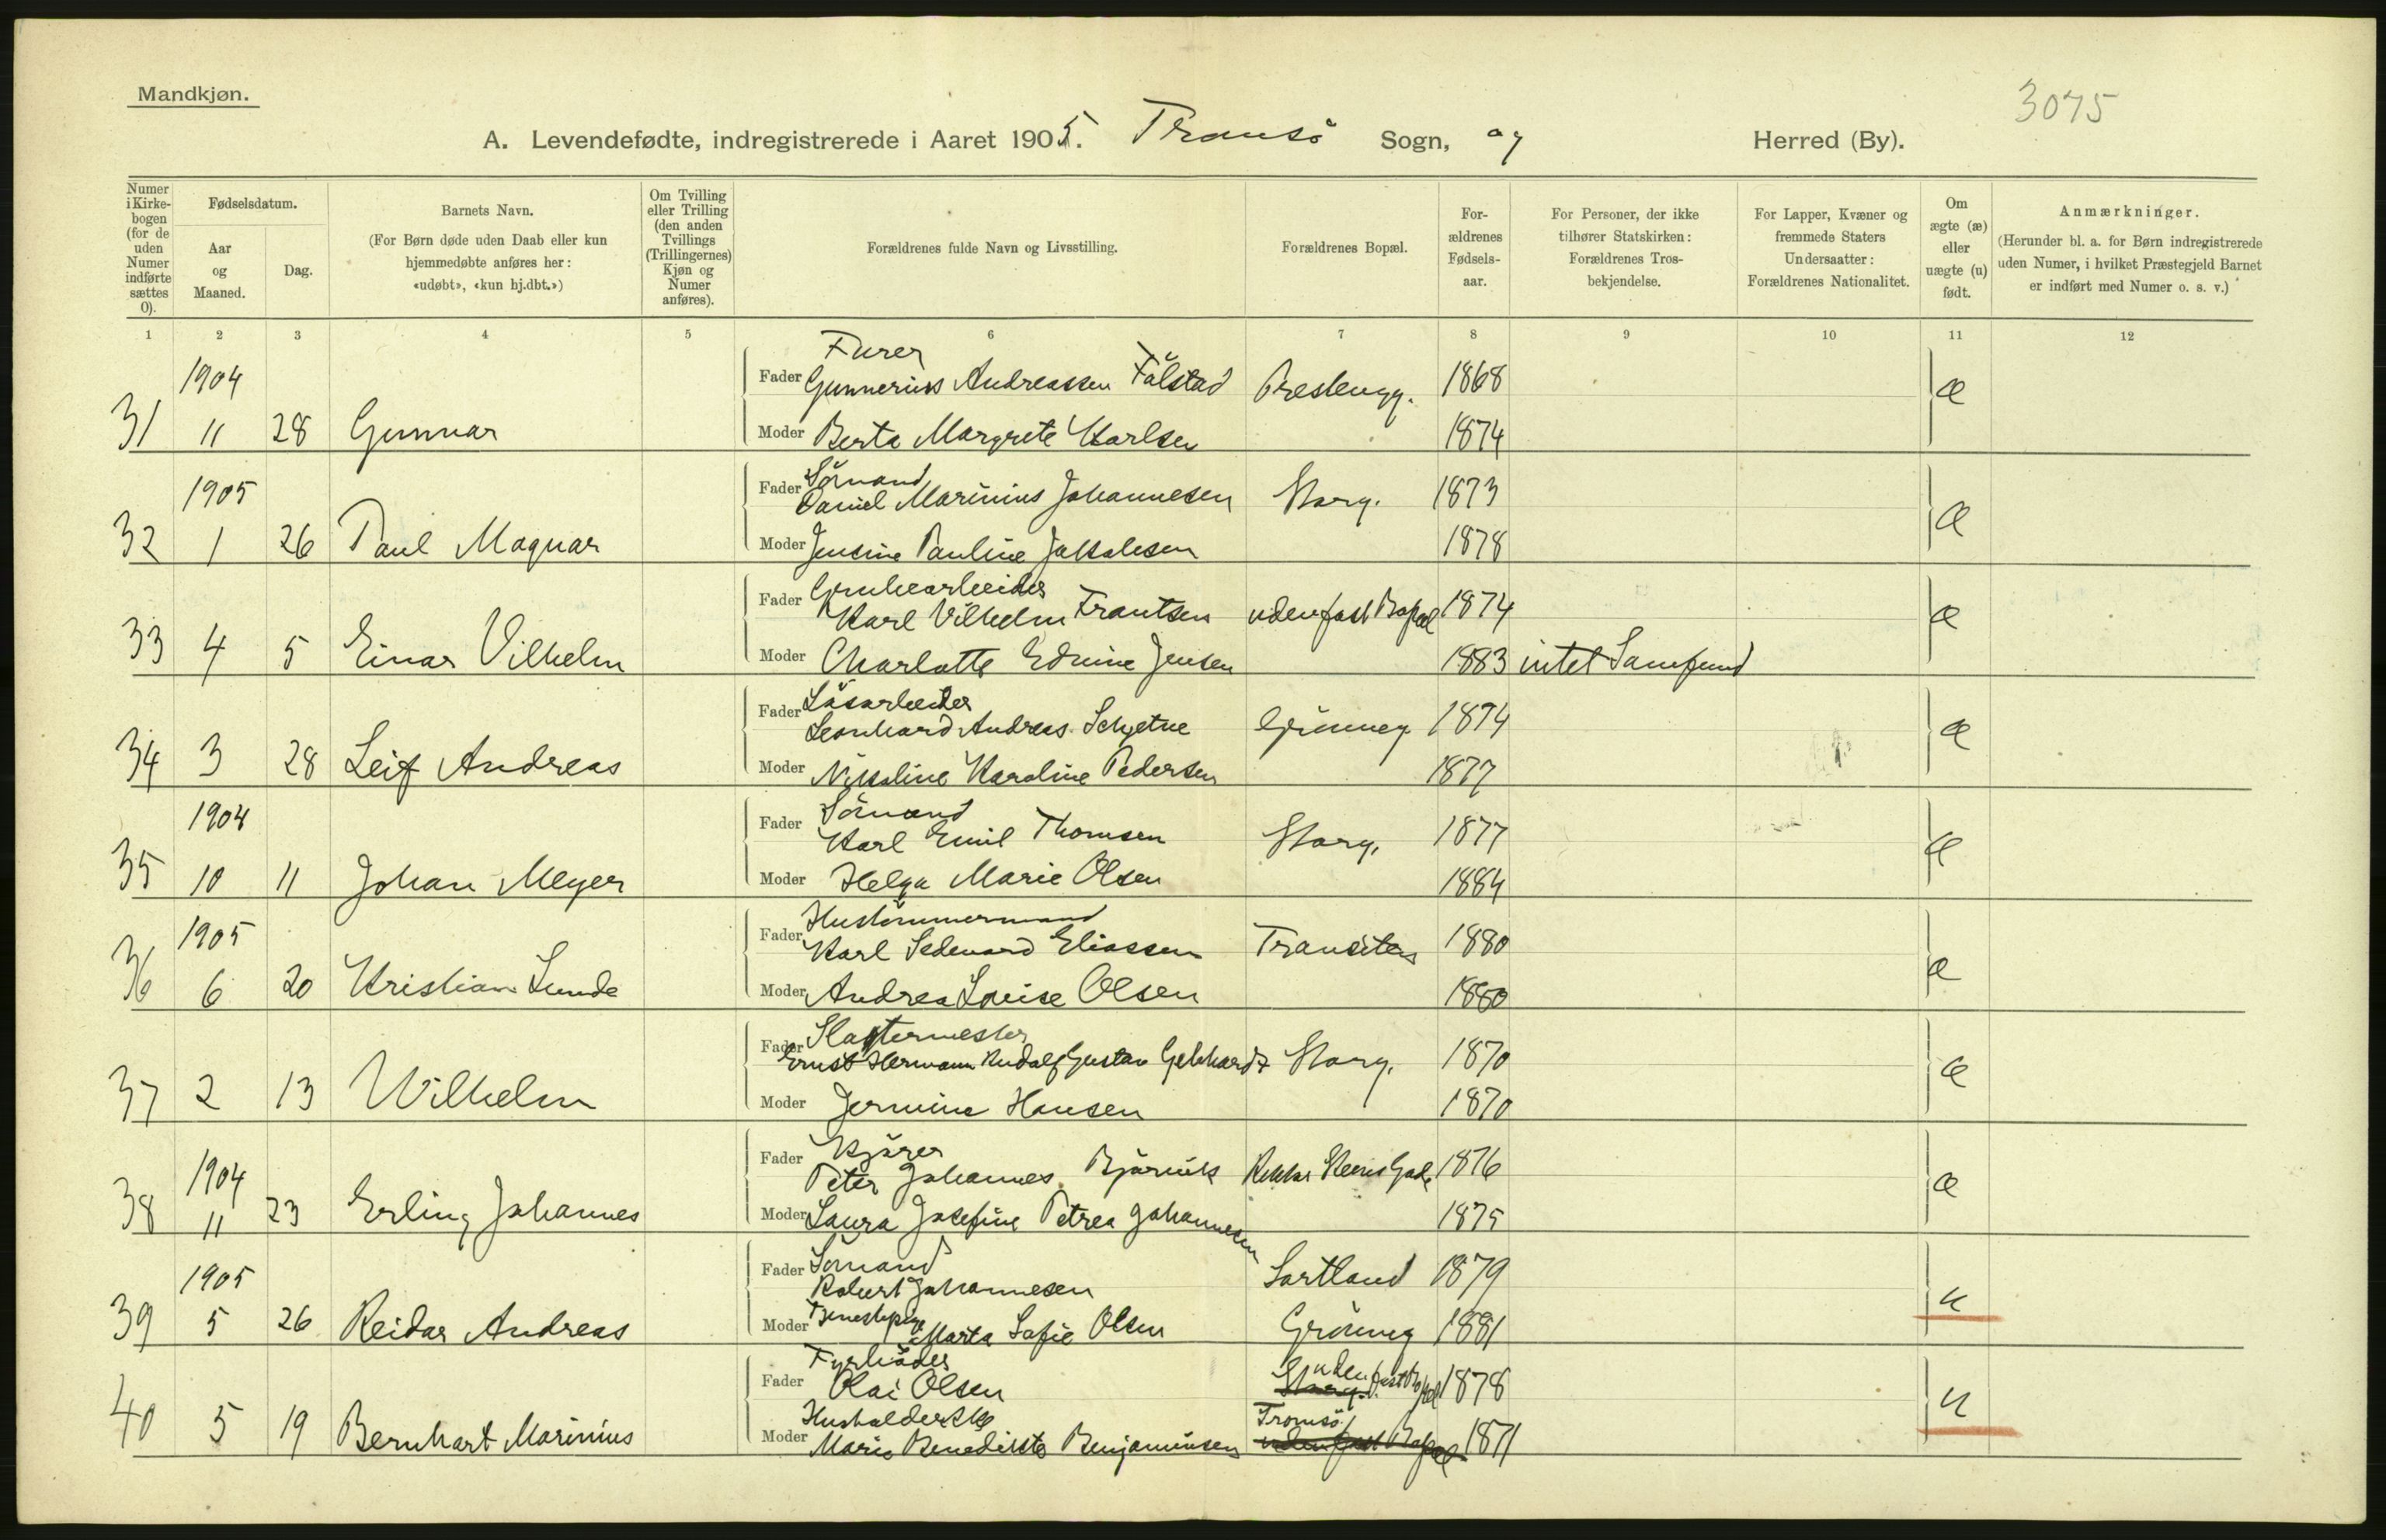 Mandkjøn.
3075
A. Levendefødte, indregistrerede i Aaret 1905. Tromsö Sogn, og Herred (By).
Numer i Kirke-bogen (for de uden Numer indførte sættes 0).
Fødselsdatum.
Aar og Maaned.
Dag.
Barnets Navn.
(For Børn døde uden Daab eller kun hjemmedøbte anføres her: «udøbt», «kun hj.dbt.»)
Om Tvilling eller Trilling (den anden Tvillings (Trillingernes) Kjøn og Numer anføres).
Forældrenes fulde Navn og Livsstilling.
Forældrenes Bopæl.
For-ældrenes Fødsels-aar.
For Personer, der ikke tilhører Statskirken: Forældrenes Tros-bekjendelse.
For Lapper, Kvæner og fremmede Staters Undersaatter: Forældrenes Nationalitet.
Om ægte (æ) eller uægte (u) født.
Anmærkninger.
(Herunder bl. a. for Børn indregistrerede uden Numer, i hvilket Præstegjeld Barnet er indført med Numer o. s. v.)
1 2 3 4 5 6 7 8 9 10 11 12
Furer
1904 Fader Gunnerius Andreassen Fålstad Prestengg. 1868 æ
31 11 28 Gunnar Moder Berta Margrete Karlsen 1874
Sömand
1905 Fader Daniel Marinius Johannesen Storg. 1873 æ
32 1 26 Paul Magnar Moder Jensine Pauline Jakobsen 1878
Grubearbeider
Fader Karl Vilhelm Frantsen uden fast Bopæl 1874 æ
33 4 5 Einar Vilhelm Moder Charlotte Edvine Jensen 1883 intet Samfund
Lösarbeider
Fader Leonhard Andreas Schjetne Grönneg. 1874 æ
34 3 28 Leif Andreas Moder Nikoline Karoline Pedersen 1877
Sömand
1904 Fader Karl Emil Thomsen Storg. 1877 æ
35 10 11 Johan Meyer Moder Helga Marie Olsen 1884
Hustömmermand
1905 Fader Karl Edevard Eliassen 1880 æ
36 6 20 Kristian Lunde Moder Andrea Louise Olsen 1880
Slagtermester
Fader Ernst Hermann Rudolf Gustav Gebhardt Storg. 1870 æ
37 2 13 Wilhelm Moder Jermine Hansen 1870
Kjörer
1904 Fader Peter Johannes Bjørnvik Rektor Steens Gade 1876 æ
38 11 23 Erling Johannes Moder Laura Josefine Petrea Johannesen 1875
Sömand
1905 Fader Robert Johannesen Sortland 1879 u
39 5 26 Reidar Andreas Moder Tjenestepige Marta Sofie Olsen Grönneg 1881
Fyrböder
Fader Olai Olsen Storg. uden fast Bopæl 1878 u
Husholderske Tromsö
40 5 19 Bernhart Marinius Moder Marie Benedikte Benjaminsen uden fast Bopæl 1871